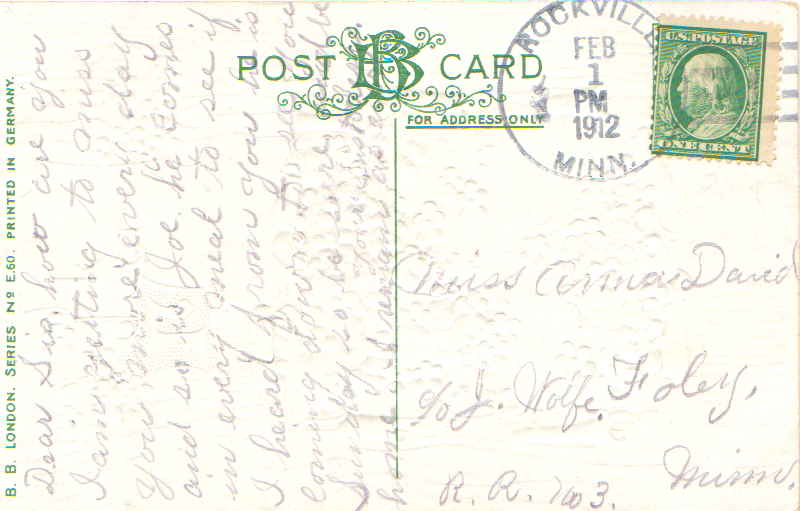 B. B. LONDON. SERIES Nº E.60. PRINTED IN GERMANY.
POST BB CARD
FOR ADDRESS ONLY
ROCKVILLE
FEB
1
PM
1912
MINN.
U.S. POSTAGE
ONE CENT
Dear Sis, how are you
I am getting to miss
you more every day
and so is Joe he comes
in every meal to see if
I heard from you he is
coming down to see you
Sunday so be sure to be
home I remain as ever
Your sister
Miss Anna David
c/o J. Wolfe. Foley,
Minn.
R. R. No 3.